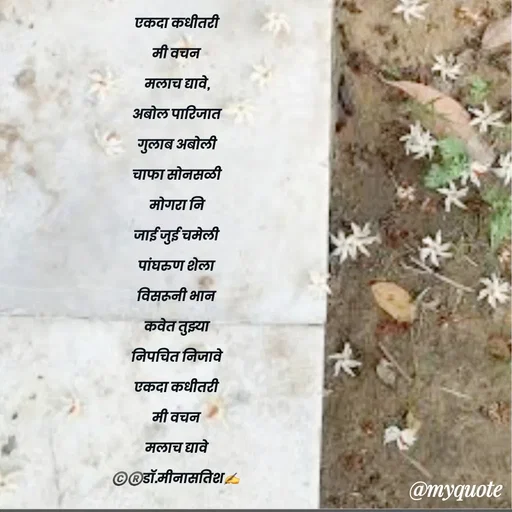 एकदा कधीतरी
मी वचन
मलाच द्यावे,
अबोल पारिजात
गुलाब अबोली
चाफा सोनसळी
मोगरा नि
जाई जुई चमेली
पांघरुण शेला
विसरूनी भान
कवेत तुझ्या
निपचित निजावे
एकदा कधीतरी
मी वचन
मलाच द्यावे
©®डॉ.मीनासतिश✍️
@myquote